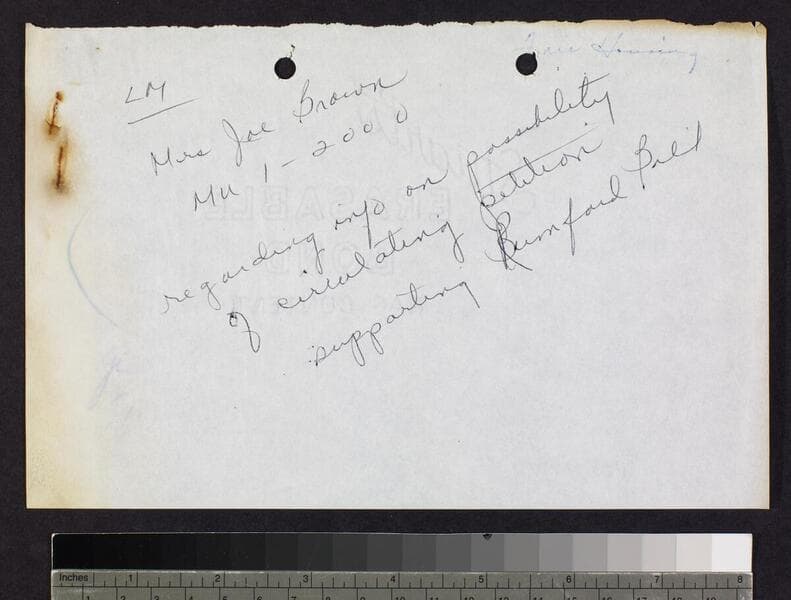 Fair Housing
LM
Mrs Joe Brown
MU 1-2000
regarding info on possibility
of circulating petition
supporting Rumford Bill
ERASABLE
BOND
Inches 1 2 3 4 5 6 7 8